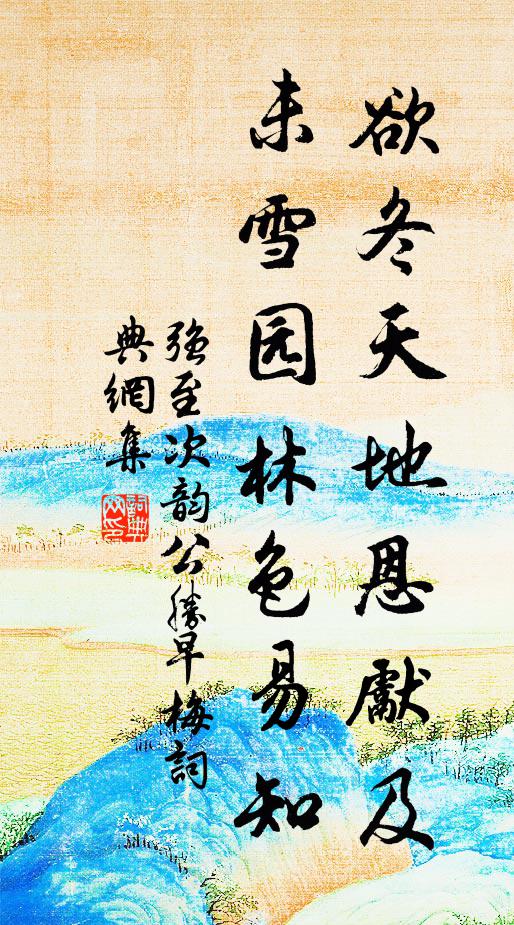 欲冬天地恩献及
未雪园林色易知
强至次韵公勝早梅詞
典網集
詞典网印